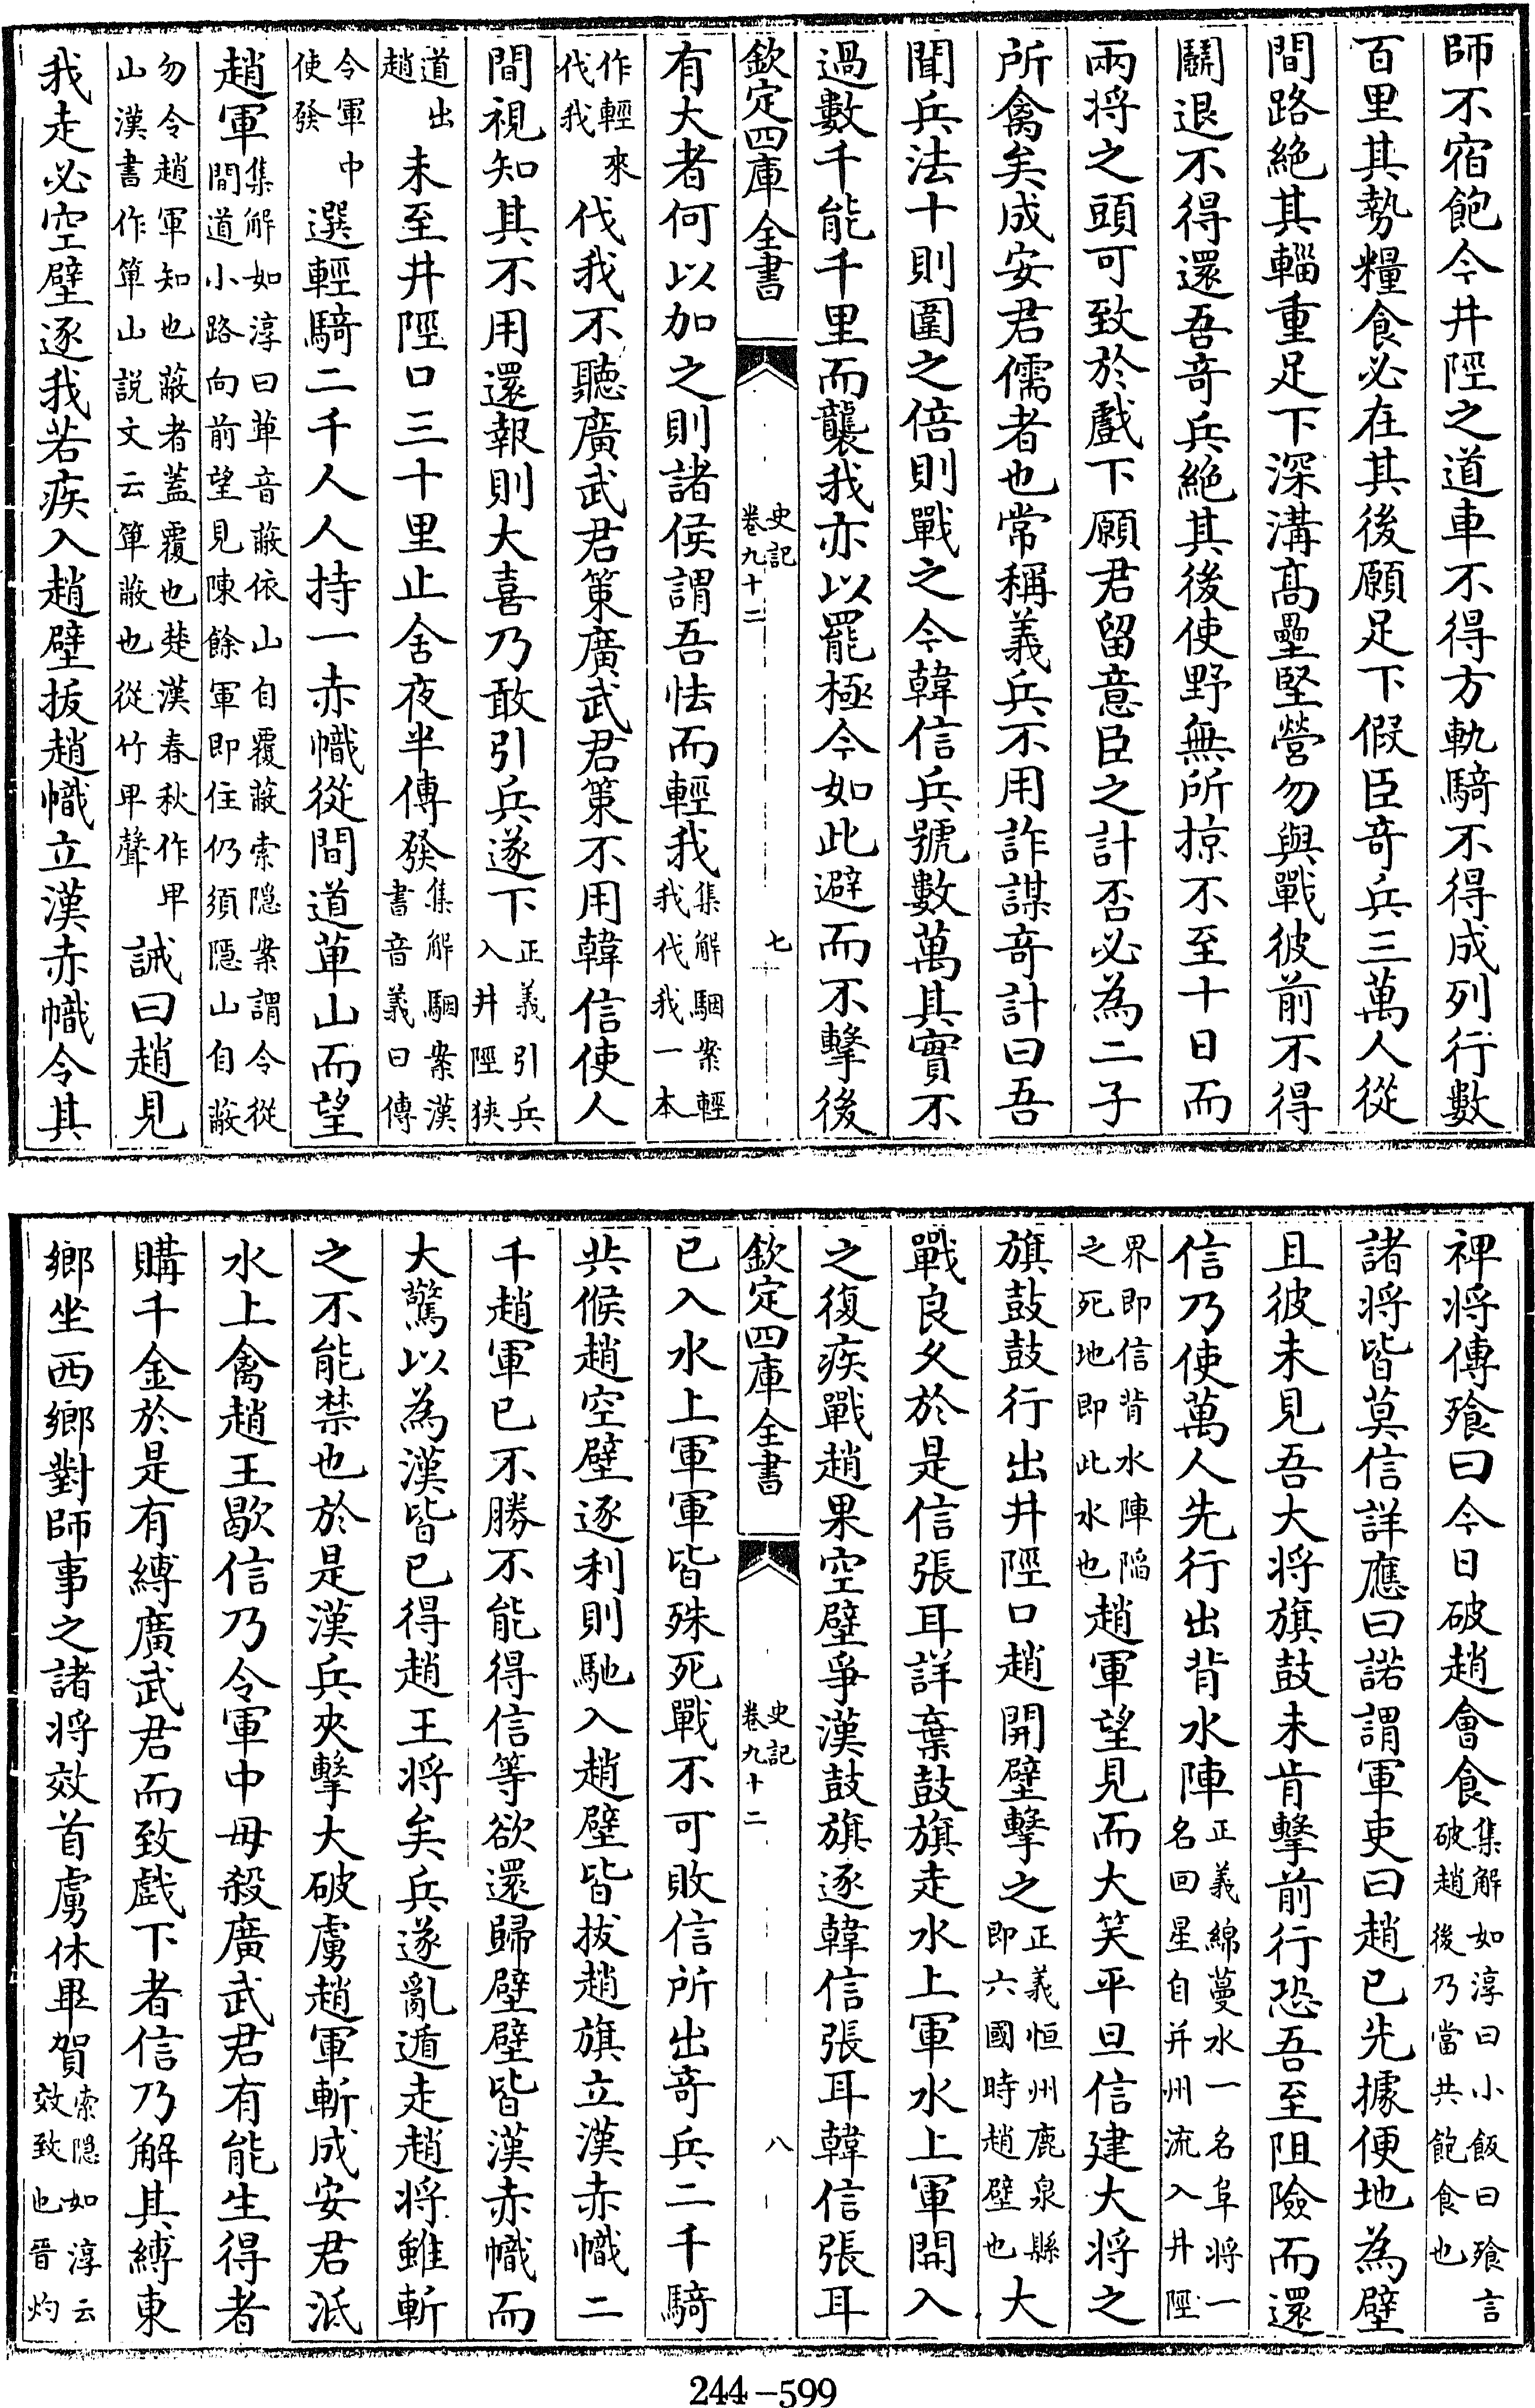 師不宿飽今井陘之道車不得方軌騎不得成列行數
百里其勢糧食必在其後願足下假臣竒兵三萬人從
間路絶其輜重足下深溝髙壘堅營勿與戰彼前不得
鬬退不得還吾竒兵絶其後使野無所掠不至十日而
兩將之頭可致於戲下願君留意臣之計否必為二子
所禽矣成安君儒者也常稱義兵不用詐謀竒計曰吾
聞兵法十則圍之倍則戰之今韓信兵號數萬其實不
過數千能千里而襲我亦以罷極今如此避而不擊後
欽定四庫全書
史記
卷九十二
七
有大者何以加之則諸侯謂吾怯而輕我集解駰案輕
我代我一本
作輕來
伐我
伐我不聽廣武君策廣武君策不用韓信使人
間視知其不用還報則大喜乃敢引兵遂下正義引兵
入井陘狹
道出
趙
未至井陘口三十里止舍夜半傳發集解駰案漢
書音義曰傳
令軍中
使發
選輕騎二千人人持一赤幟從間道萆山而望
趙軍集解如淳曰萆音蔽依山自覆蔽索隠案謂令從
間道小路向前望見陳餘軍即住仍須隱山自蔽
勿令趙軍知也蔽者蓋覆也楚漢春秋作卑
山漢書作箄山説文云箄蔽也從竹卑聲
誡曰趙見
我走必空壁逐我若疾入趙壁拔趙幟立漢赤幟令其
裨將傳飱曰今日破趙會食集解如淳曰小飯曰飱言
破趙後乃當共飽食也
諸將皆莫信詳應曰諾謂軍吏曰趙已先據便地為壁
且彼未見吾大將旗鼓未肯擊前行恐吾至阻險而還
信乃使萬人先行出背水陣正義綿蔓水一名阜將一
名回星自并州流入井陘
界即信背水陣陷
之死地即此水也
趙軍望見而大笑平旦信建大將之
旗鼓鼓行出井陘口趙開壁擊之正義恒州鹿泉縣
即六國時趙壁也
大
戰良乆於是信張耳詳棄鼓旗走水上軍水上軍開入
之復疾戰趙果空壁爭漢鼓旗逐韓信張耳韓信張耳
欽定四庫全書
史記
卷九十二
八
已入水上軍軍皆殊死戰不可敗信所出竒兵二千騎
共候趙空壁逐利則馳入趙壁皆拔趙旗立漢赤幟二
千趙軍已不勝不能得信等欲還歸壁壁皆漢赤幟而
大驚以為漢皆已得趙王將矣兵遂亂遁走趙將雖斬
之不能禁也於是漢兵夾擊大破虜趙軍斬成安君泜
水上禽趙王歇信乃令軍中毋殺廣武君有能生得者
購千金於是有縛廣武君而致戲下者信乃解其縛東
鄉坐西鄉對師事之諸將效首虜休畢賀索隠如淳云
效致也晉灼
244-599